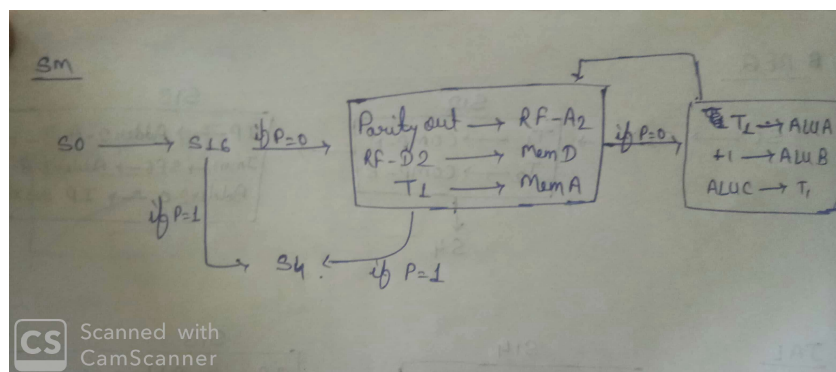 SM
S0 → S16
if P=0
Parity out → RF-A2
RF-D2 → Mem D
T1 → Mem A
if P=0
T1 → ALU A
+1 → ALU B
ALU C → T1
if P=1
S4
if P=1
CS
Scanned with
CamScanner